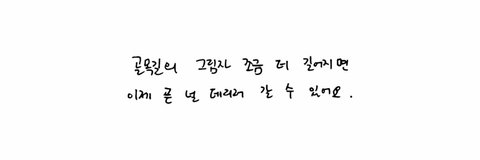 골목길의 그림자 조금 더 길어지면
이제 곧 널 데리러 갈 수 있어요.